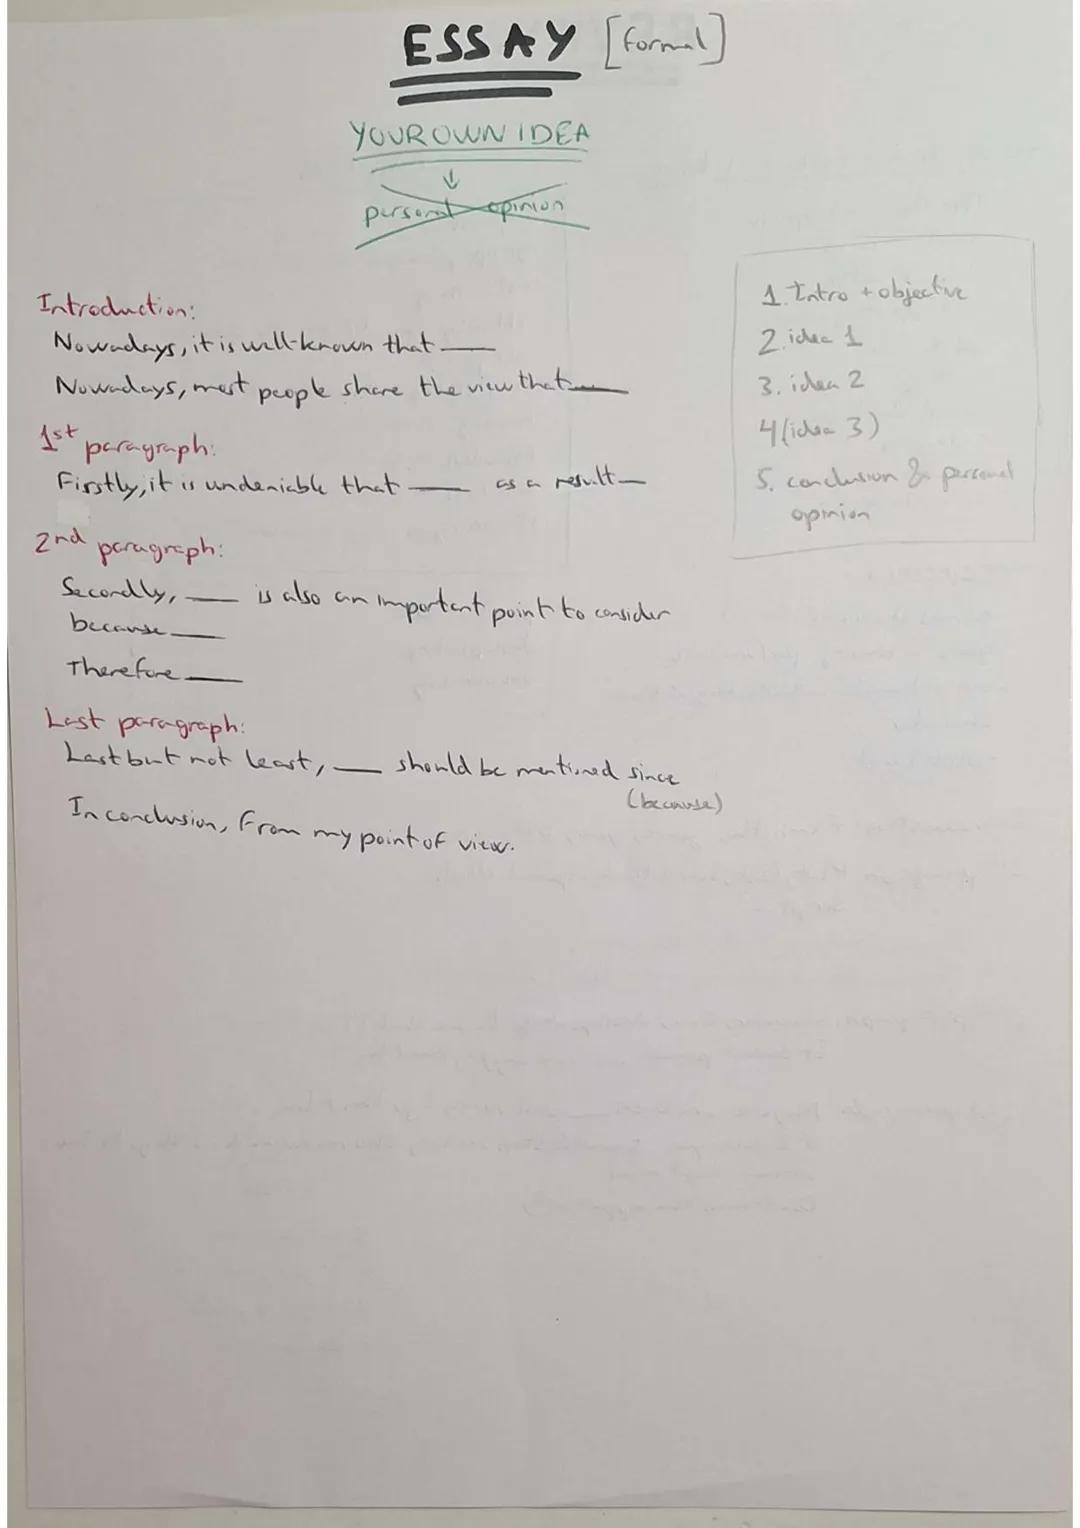 ESSAY [formal]
YOUR OWN IDEA
↓
personal opinion
Introduction:
Nowadays, it is well-known that ___
Nowadays, most people share the view that ___
1st paragraph:
Firstly, it is undeniable that ___ as a result ___
2nd paragraph:
Secondly, ___ is also an important point to consider
because ___
Therefore ___
Last paragraph:
Last but not least, ___ should be mentioned since
(because)
In conclusion, from my point of view.
1. Intro + objective
2. idea 1
3. idea 2
4 (idea 3)
5. conclusion & personal
opinion